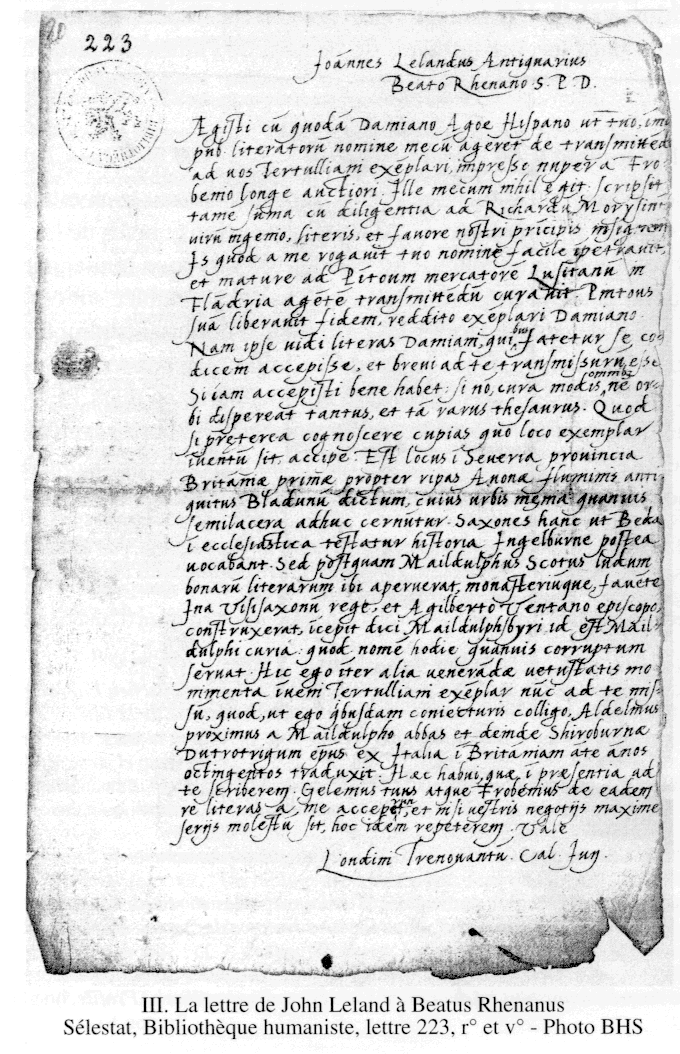 223
Joānnes Lelandus Antiquarius
Beato Rhenano S. P. D.
Aegisti cū quodā Damiano Agoe Hispano ut tuo, imo
pub. literatorū nomine mecū ageret de transmittēdo
ad uos Tertulliani exēplari, impresso nuper a Fro
benio longe auctiori. Ille mecum nihil egit. scripsit
tamē sūma cū diligentia ad Richardū Morysinū
uirū ingenio, literis, et fauore nostri prīcipis insignem
Is quod a me rogauit tuo nomine facile īpetrauit,
et mature ad Pitoum mercatorē Lusitanū in
Flādria agētē transmittēdū curauit. Pintous
suā liberauit fidem, reddito exēplari Damiano.
Nam ipse uidi literas Damiani, quibus fatetur se co
dicem accepisse, et breui ad te transmissurū esse
Si iam accepisti bene habet: si nō, cura modis ommōs, ne or
bi dispereat tantus, et tā rarus thesaurus. Quod
si preterea cognoscere cupias quo loco exemplar
īuentū sit, accipe. Est locus ī Seueria prouincia
Britaniæ primæ propter ripas Auonæ fluminis anti
quitus Bladunū dictum, cuius urbis mēnia quanuis
semilacera adhuc cernūtur. Saxones hanc ut Beda
ī ecclesiastica tēstatur historia Ingelburne postea
uocabant. Sed postquam Maildulphus Scotus ludum
bonarū literarum ibi aperuerat, monasteriūque, fauēte
Ina Visisaxonū rege, et Agilberto Ventano episcopo,
cōnstruxerat, īcepit dici Maildulphisbyri, id est Mail-
dulphi curia: quod nomē hodie quanuis corruptum
seruat. Hic ego īter alia uenerādæ uetustatis mo
nimenta īueni Tertulliani exēplar nūc ad te mis-
sū, quod, ut ego qbusdam coniecturis colligo, Aldelmus
proximus a Maildulpho abbas et deinde Shiroburnæ
Durotrigum ep̄us ex Italia ī Britāniam āte ānos
octingentos traduxit. Hæc habui, quæ, ī præsentia ad
te scriberem. Gelenius tuus atque Frobenius de eadem
rē literas a me acceperunt, et nisi uestris negotijs maxime
serijs molestū sit, hoc idem repeterem. Vale
Londini Trenouantū. Cal. Iun.
III. La lettre de John Leland à Beatus Rhenanus
Sélestat, Bibliothèque humaniste, lettre 223, r° et v° - Photo BHS